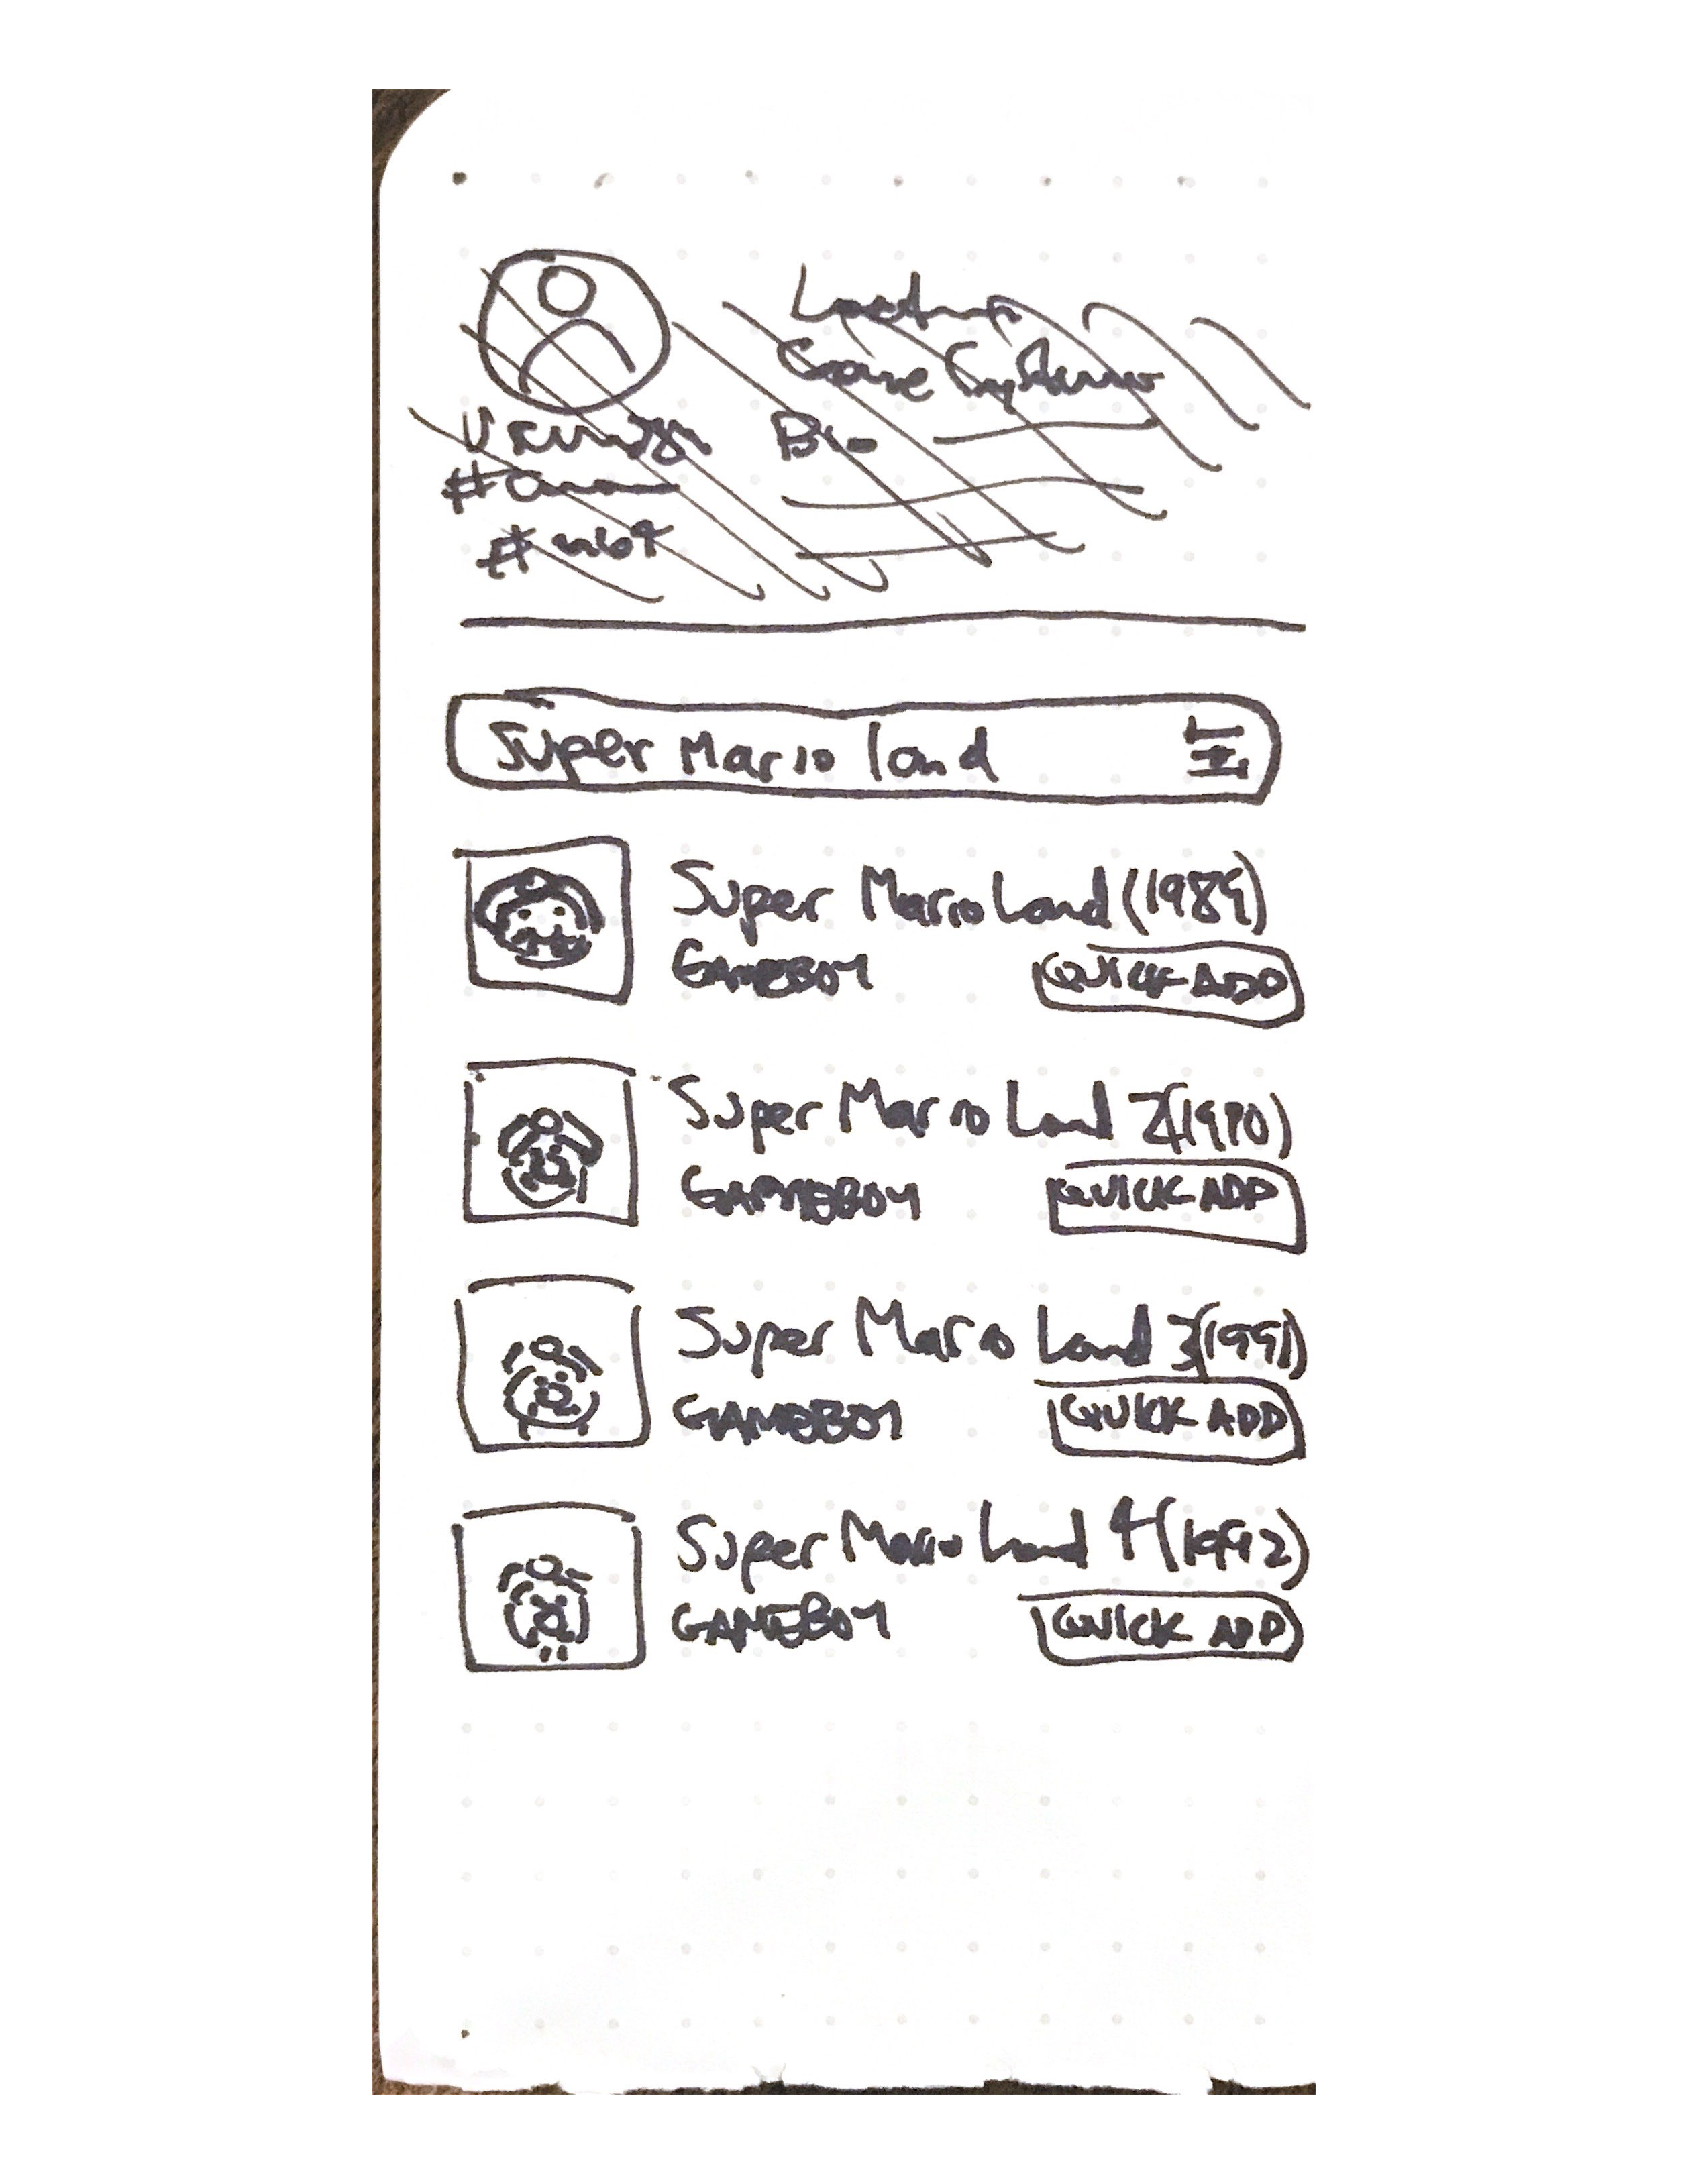 Location
Game Systems
Username
Bio
# own
# want
Super Mario land
Super Mario Land (1989)
GAMEBOY
QUICK ADD
Super Mario Land 2 (1990)
GAMEBOY
QUICK ADD
Super Mario Land 3 (1991)
GAMEBOY
QUICK ADD
Super Mario Land 4 (1992)
GAMEBOY
QUICK ADD